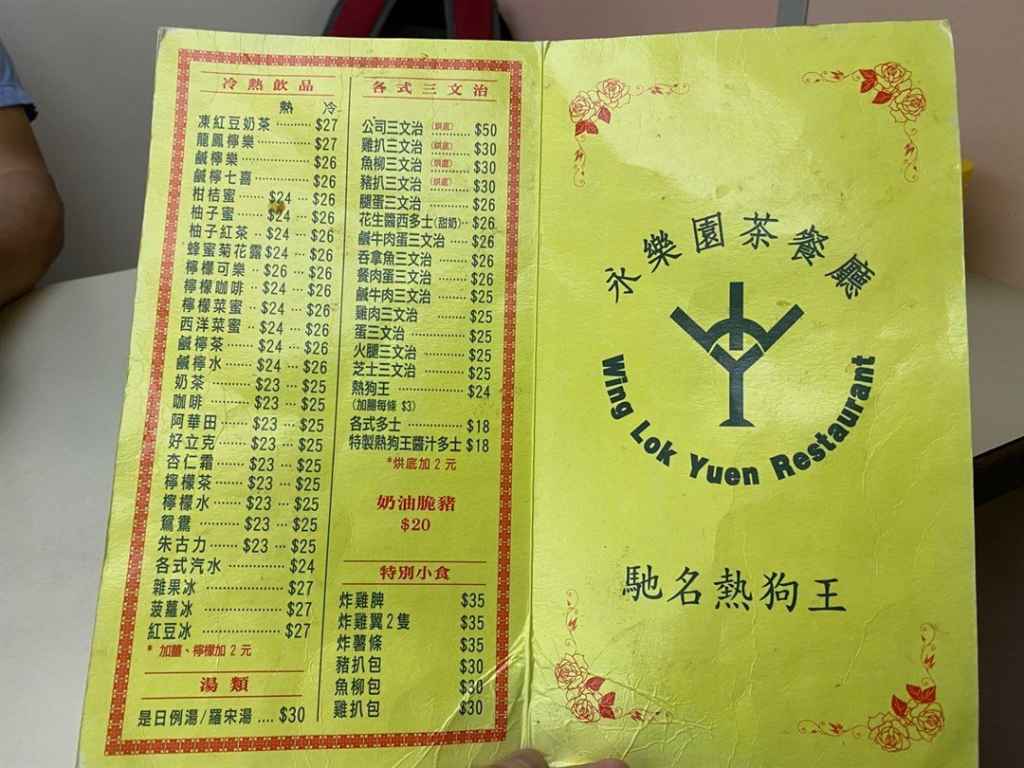 冷熱飲品
熱 冷
凍紅豆奶茶 ·········· $27
龍鳳檸樂 ··············· $27
鹹檸樂 ·················· $26
鹹檸七喜 ··············· $26
柑桔蜜 ······ $24 ··· $26
柚子蜜 ······ $24 ··· $26
柚子紅茶 ·· $24 ··· $26
蜂蜜菊花露 $24 ··· $26
檸檬可樂 ·· $26 ··· $26
檸檬咖啡 ·· $24 ··· $26
檸檬菜蜜 ·· $24 ··· $26
西洋菜蜜 ·· $24 ··· $26
鹹檸茶 ······ $24 ··· $26
鹹檸水 ······ $24 ··· $26
奶茶 ········· $23 ··· $25
咖啡 ········· $23 ··· $25
阿華田 ······ $23 ··· $25
好立克 ······ $23 ··· $25
杏仁霜 ······ $23 ··· $25
檸檬茶 ······ $23 ··· $25
檸檬水 ······ $23 ··· $25
鴛鴦 ········· $23 ··· $25
朱古力 ······· $23 ··· $25
各式汽水 ··············· $24
雜果冰 ·················· $27
菠蘿冰 ·················· $27
紅豆冰 ·················· $27
* 加薑、檸檬加 2 元
湯類
是日例湯/羅宋湯 .... $30
各式三文治
公司三文治 (烘底) ······ $50
雞扒三文治 (烘底) ······ $30
魚柳三文治 (烘底) ······ $30
豬扒三文治 (烘底) ······ $30
腿蛋三文治 ············ $26
花生醬西多士(甜奶)·· $26
鹹牛肉蛋三文治 ····· $26
吞拿魚三文治 ········ $26
餐肉蛋三文治 ········ $26
鹹牛肉三文治 ········ $25
雞肉三文治 ········ $25
蛋三文治 ············ $25
火腿三文治 ············ $25
芝士三文治 ············ $25
熱狗王 ·················· $24
(加腸每條 $3)
各式多士 ··············· $18
特製熱狗王醬汁多士 $18
*烘底加 2 元
奶油脆豬
$20
特別小食
炸雞脾 $35
炸雞翼2隻 $35
炸薯條 $35
豬扒包 $30
魚柳包 $30
雞扒包 $30
永樂園茶餐廳
Wing Lok Yuen Restaurant
馳名熱狗王